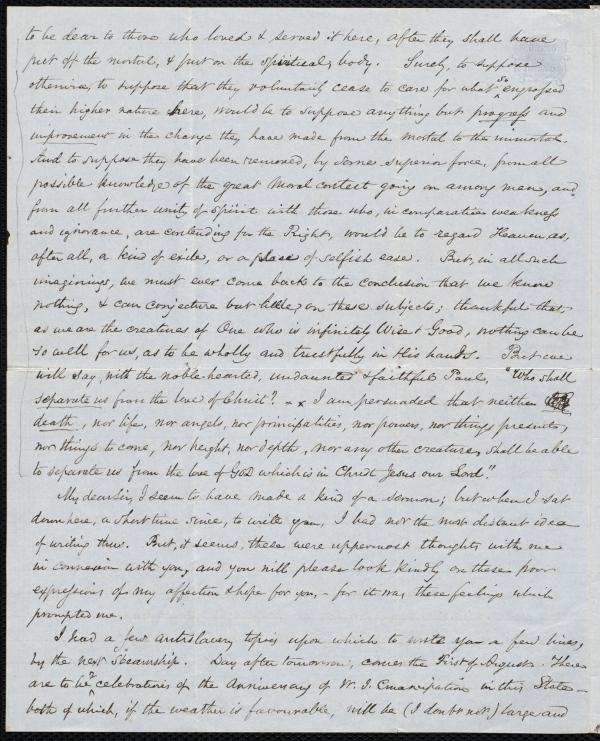 to be dear to those who loved & served it here, after they shall have
put off the mortal, & put on the spiritual, body. Surely, to suppose
otherwise, to suppose that they voluntarily cease to care for what so engrossed
their higher nature here, would be to suppose anything but progress and
improvement in the change they have made from the mortal to the immortal.
And to suppose they have been removed, by some superior force, from all
possible knowledge of the great moral contest going on among men, and
from all further unity of spirit with those who, in comparative weakness
and ignorance, are contending for the Right, would be to regard Heaven as,
after all, a kind of exile, or a place of selfish ease. But, in all such
imaginings, we must ever come back to the conclusion that we know
nothing, & can conjecture but little, on these subjects; thankful that,
as we are the creatures of One who is infinitely Wise & Good, nothing can be
so well for us, as to be wholly and trustfully in His hands. But we
will say, with the noble-hearted, undaunted & faithful Paul, "Who shall
separate us from the love of Christ? - x x I am persuaded that neither
death, nor life, nor angels, nor principalities, nor powers, nor things present,
nor things to come, nor height, nor depth, nor any other creature, shall be able
to separate us from the love of GOD which is in Christ Jesus our Lord".
My dear Sir, I seem to have made a kind of a sermon; but when I sat
down here, a short time since, to write you, I had not the most distant idea
of writing thus. But, it seems, these were uppermost thoughts with me
in connexion with you, and you will please look kindly on these poor
expressions of my affection & hope for you, - for it was these feelings which
prompted me.
I had a few antislavery topics upon which to write you a few lines,
by the next Steamship. Day after tomorrow, comes the First of August. There
are to be 2 celebrations of the Anniversary of W. I. Emancipation in this State -
both of which, if the weather is favourable, will be (I doubt not) large and